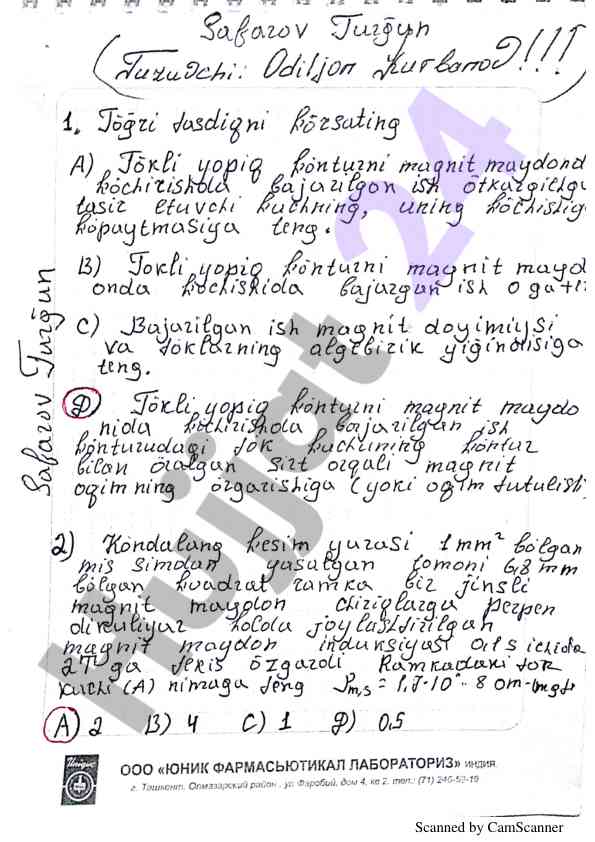 Safarov Turg'un
(Tuzuvchi: Odiljon Kurbanov)!!!
1. Tōg'ri tasdiqni kōrsating
A) Tōkli yopiq kōnturni magnit maydond
kōchirishda bajarilgan ish ōtkazgichga
tasir etuvchi kuchning, uning kōchishiga
kōpaytmasiga teng.
B) Tokli yopiq kōnturni magnit mayd
onda kōchishida bajargan ish 0 ga
C) Bajarilgan ish magnit doyimiysi
va tōklarning algebirik yig'indisiga
teng.
D) Tōkli yopiq kōnturni magnit maydo
nida kōchirishda bajarilgan ish
kōnturudagi tōk kuchining kōntur
bilan ōralgan sirt orqali magnit
oqimning ōzgarishiga (yoki oqim tutulish
Safarov Turg'un
2) Kōndalang kesim yuzasi 1 mm² bōlgan
mis simdan yasalgan tomoni 6,8 mm
bōlgan kvadrat ramka bir jinsli
magnit maydon chiziqlarga perpen
dikuliyar holda joylashtirilgan
magnit maydon induksiyasi 0,1 s ichida
2T ga tekis ōzgardi Ramkadaki tok
kuchi (A) nimaga teng
A) 2 B) 4 C) 1 D) 0,5
hujjat 24
Unique
ООО «ЮНИК ФАРМАСЬЮТИКАЛ ЛАБОРАТОРИЗ» ИНДИЯ.
г. Ташкент. Олмазарский район, ул Фаробий, дом 4, кв 2. тел.: (71) 246-59-19
Scanned by CamScanner